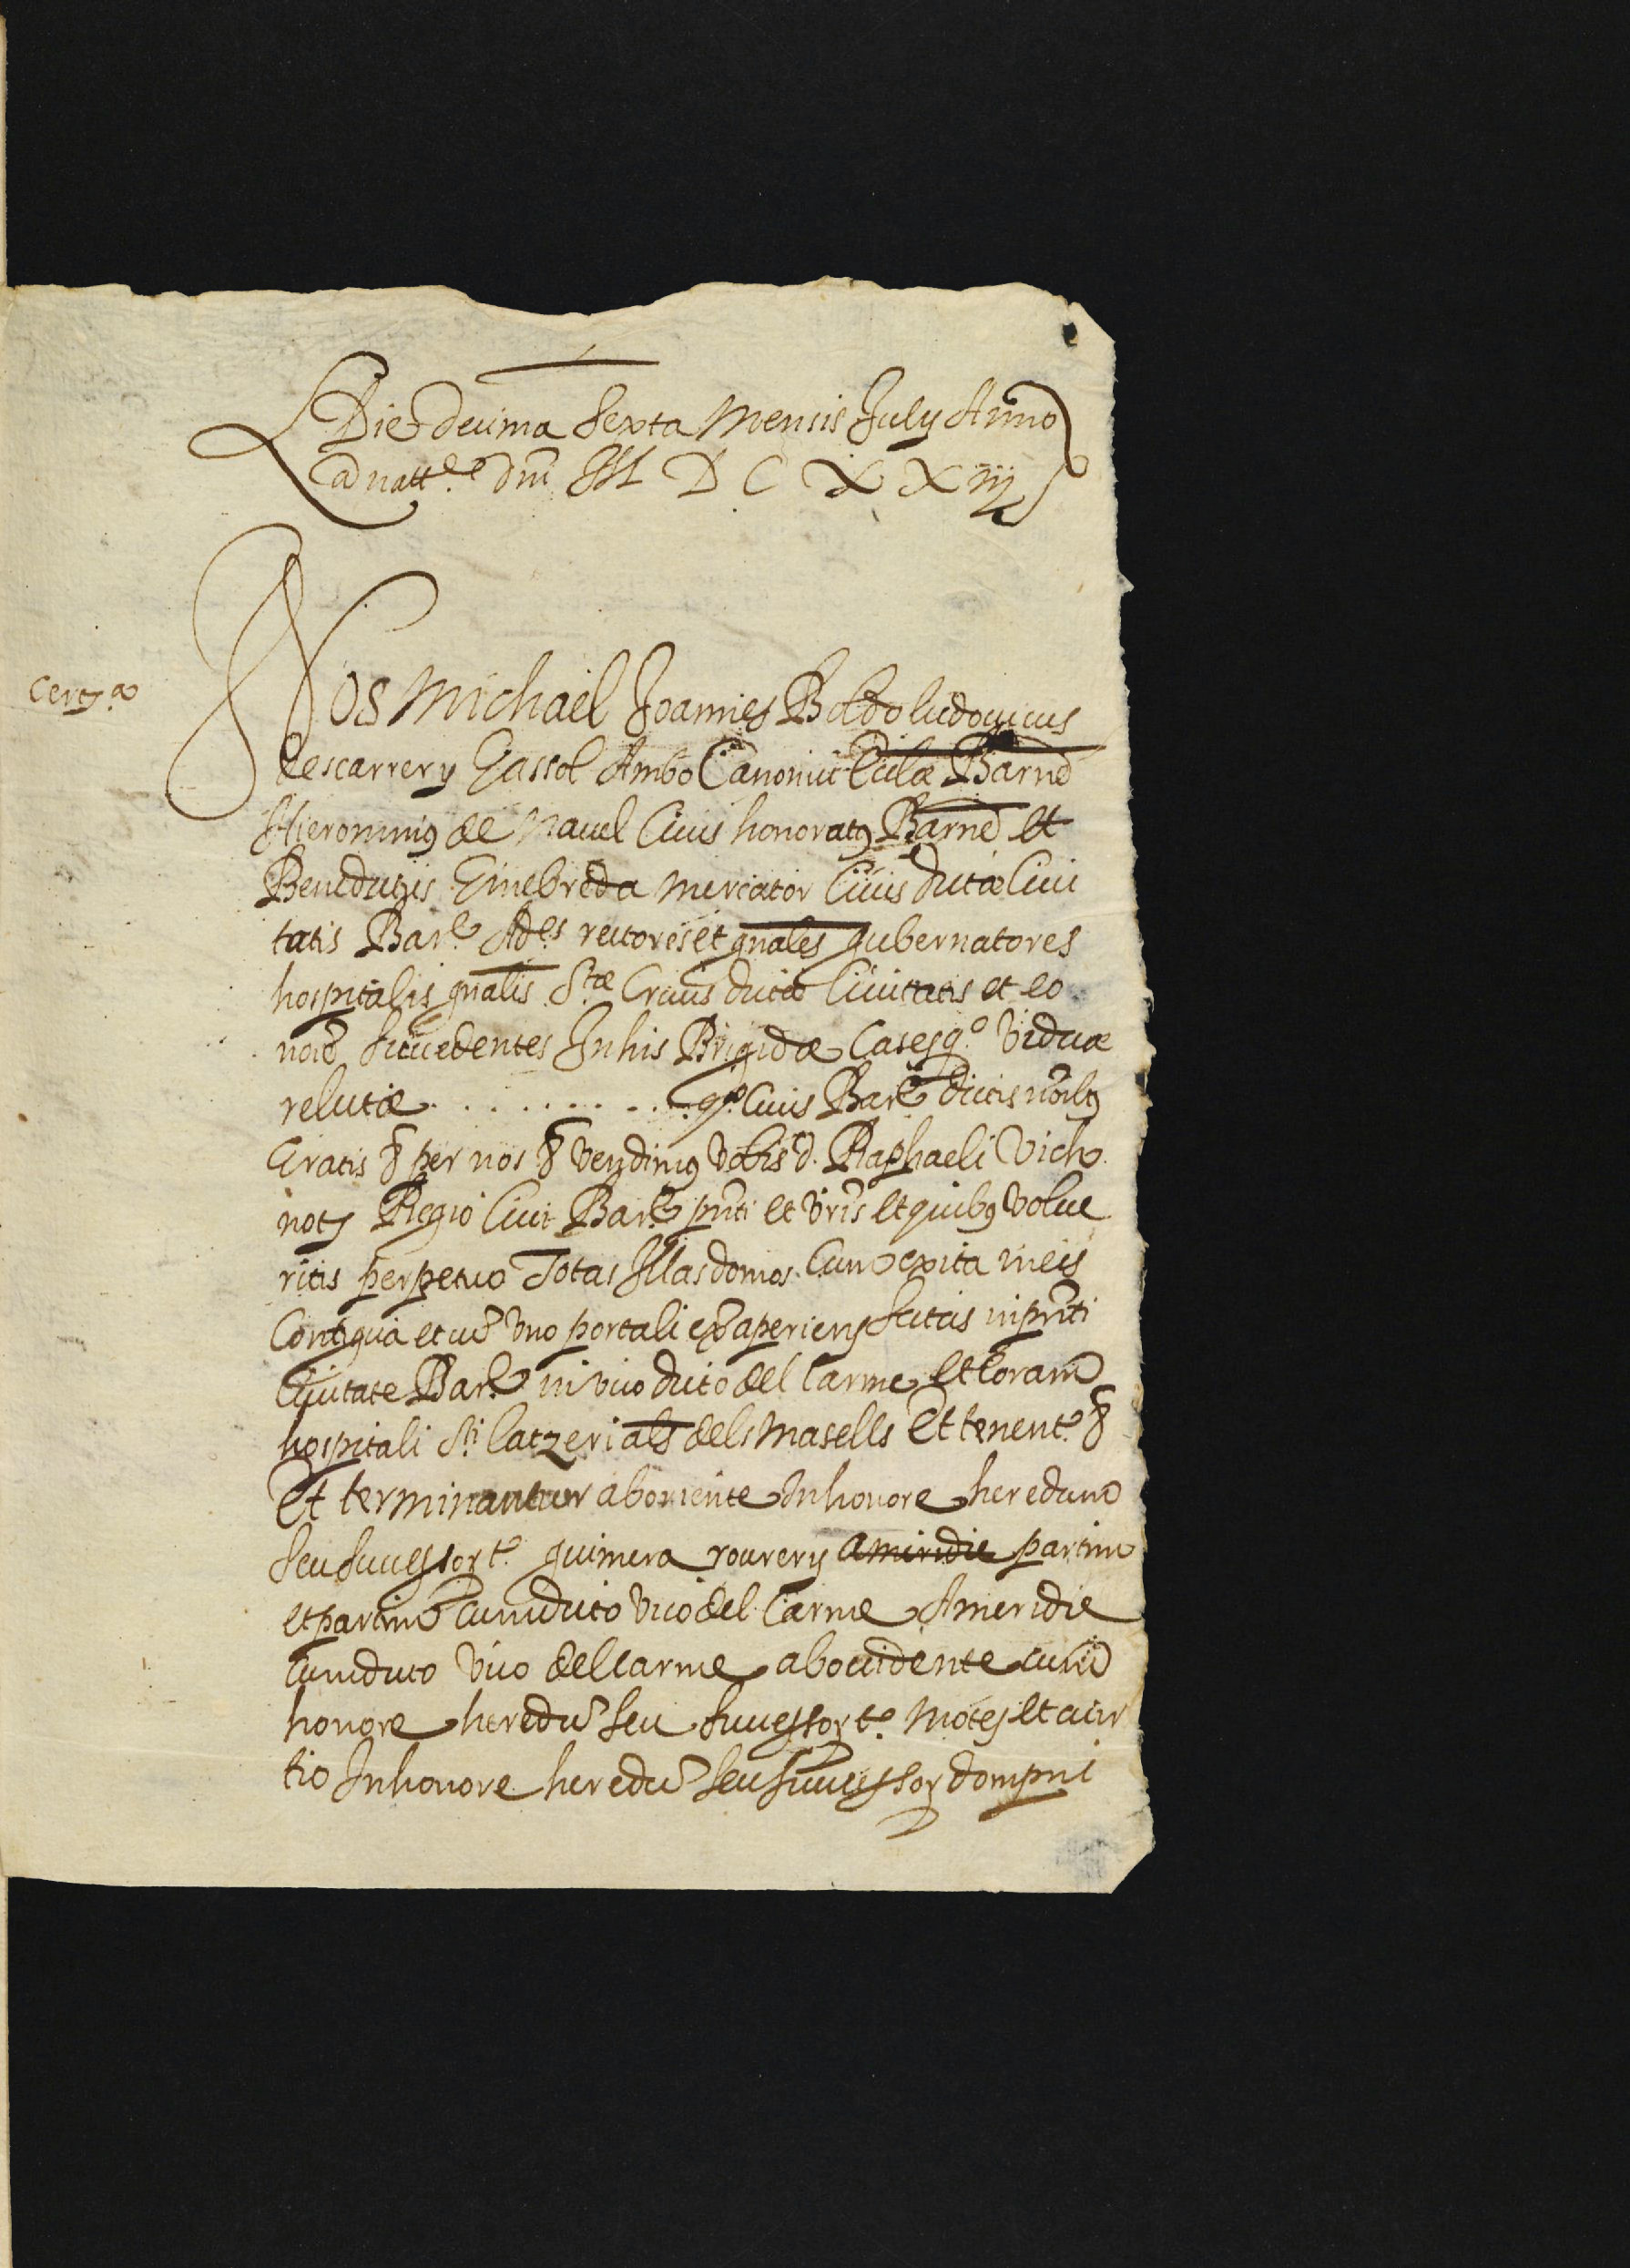 Die decima sexta mensis July Anno
a natt.e dni M D C X X iij
Certs.a
Nos Michael Joannes Boldo Ludovicus
descarrery Gassol Ambo Canonici Eclæ Barne
Hieronimus de Navel Civis honoratus Barne et
Benedictus Ginebreda mercator Civis dictæ Civi
tatis Bare Ad.es rectores et gnales gubernatores
hospitalis gnalis Stæ Crucis dictæ Civitatis et eo
noie succedentes In his Brigidæ Cases q.o Viduæ
relictæ . . . . . . . . . . q.o Civis Bare dictis noibus
Gratis & per nos & vendimus vobis d. Raphaeli Vich
not Regio Civi Bare pnti et vris et quibus volue
ritis perpetuo Totas Illas domos. Cum exita in eis
Contigua et cu uno portali extra aperiens scitas in pnti
Civitate Bare in vico dicto del Carme et Coram
hospitali Sti Latzeri als dels Masells Et tenent.r &
Et terminantur ab oriente In honore heredum
seu successor quimera rourery a miridie partim
et partim cum dicto vico del Carme A meridie
cum dicto vico del Carme ab occidente cum
honore heredu seu successor Motes et a cir
tio In honore heredu seu successor dompni